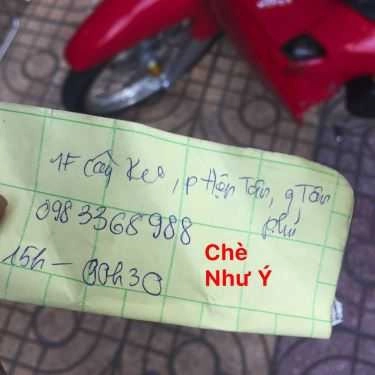 17 Cây Keo, p Hiệp Tân, q Tân
phú
0983368988
15h - 00h30
Chè
Như Ý